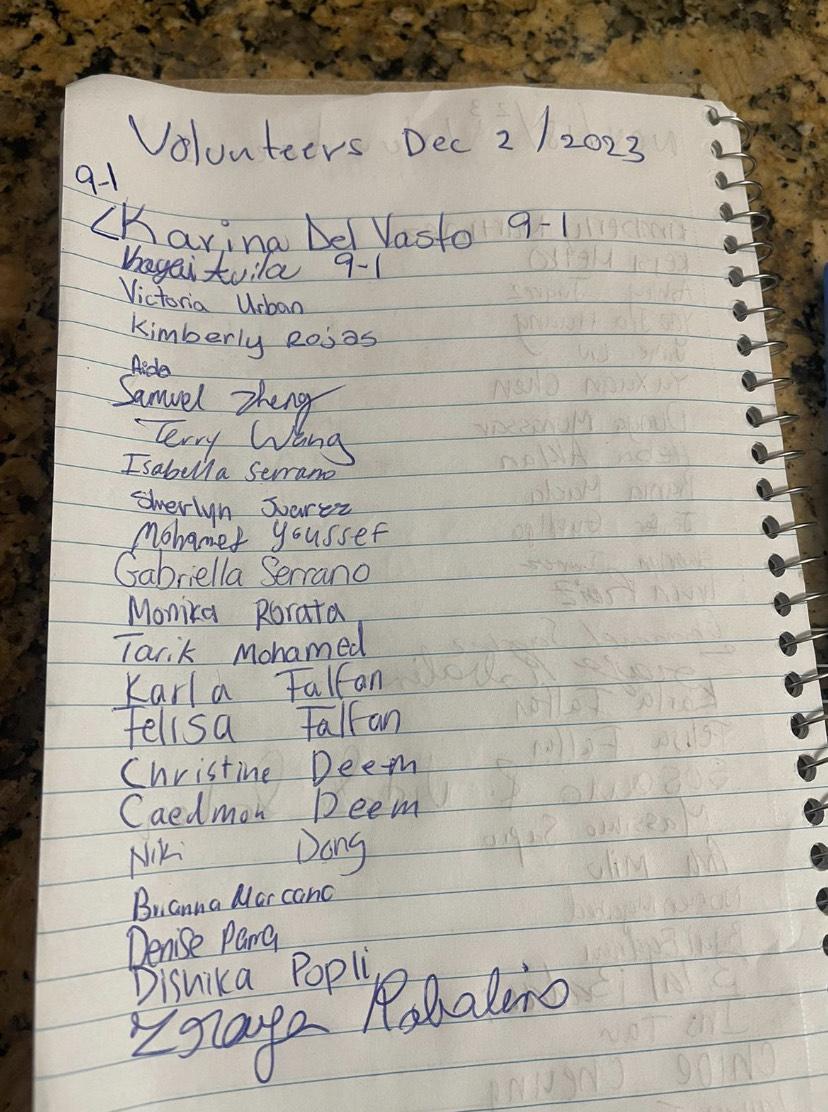 Volunteers Dec 2/2023
9-1
Karina Del Vasto 9-1
Avila 9-1
Victoria Urban
Kimberly Rojas
Aida
Samuel Zheng
Terry Wang
Isabella Serrano
Sherlyn Juarez
Mohamed Youssef
Gabriella Serrano
Monika Rorata
Tarik Mohamed
Karla Falfan
Felisa Falfan
Christine Deem
Caedmon Deem
Niki Dong
Brianna Marcano
Denise Parra
Dishika Popli
Robalino